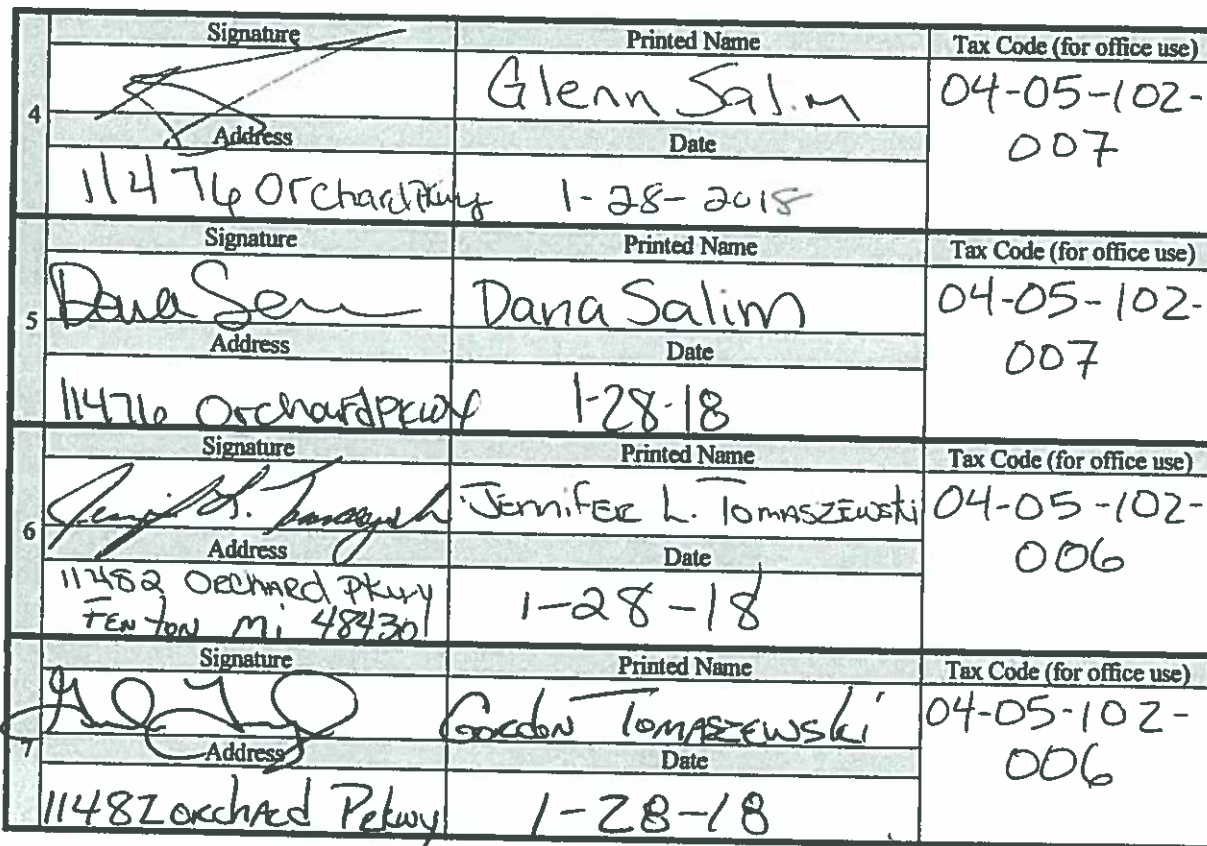 Signature Printed Name Tax Code (for office use)
Glenn Salim 04-05-102-
4 Address Date 007
11476 Orchard Pkwy 1-28-2018
Signature Printed Name Tax Code (for office use)
Dana Salim 04-05-102-
5 Address Date 007
11476 Orchard PKWY 1-28-18
Signature Printed Name Tax Code (for office use)
Jennifer L. Tomaszewski 04-05-102-
6 Address Date 006
11482 Orchard Pkwy
Fenton Mi 48430 1-28-18
Signature Printed Name Tax Code (for office use)
Gordon Tomaszewski 04-05-102-
7 Address Date 006
11482 orchard Pkwy 1-28-18